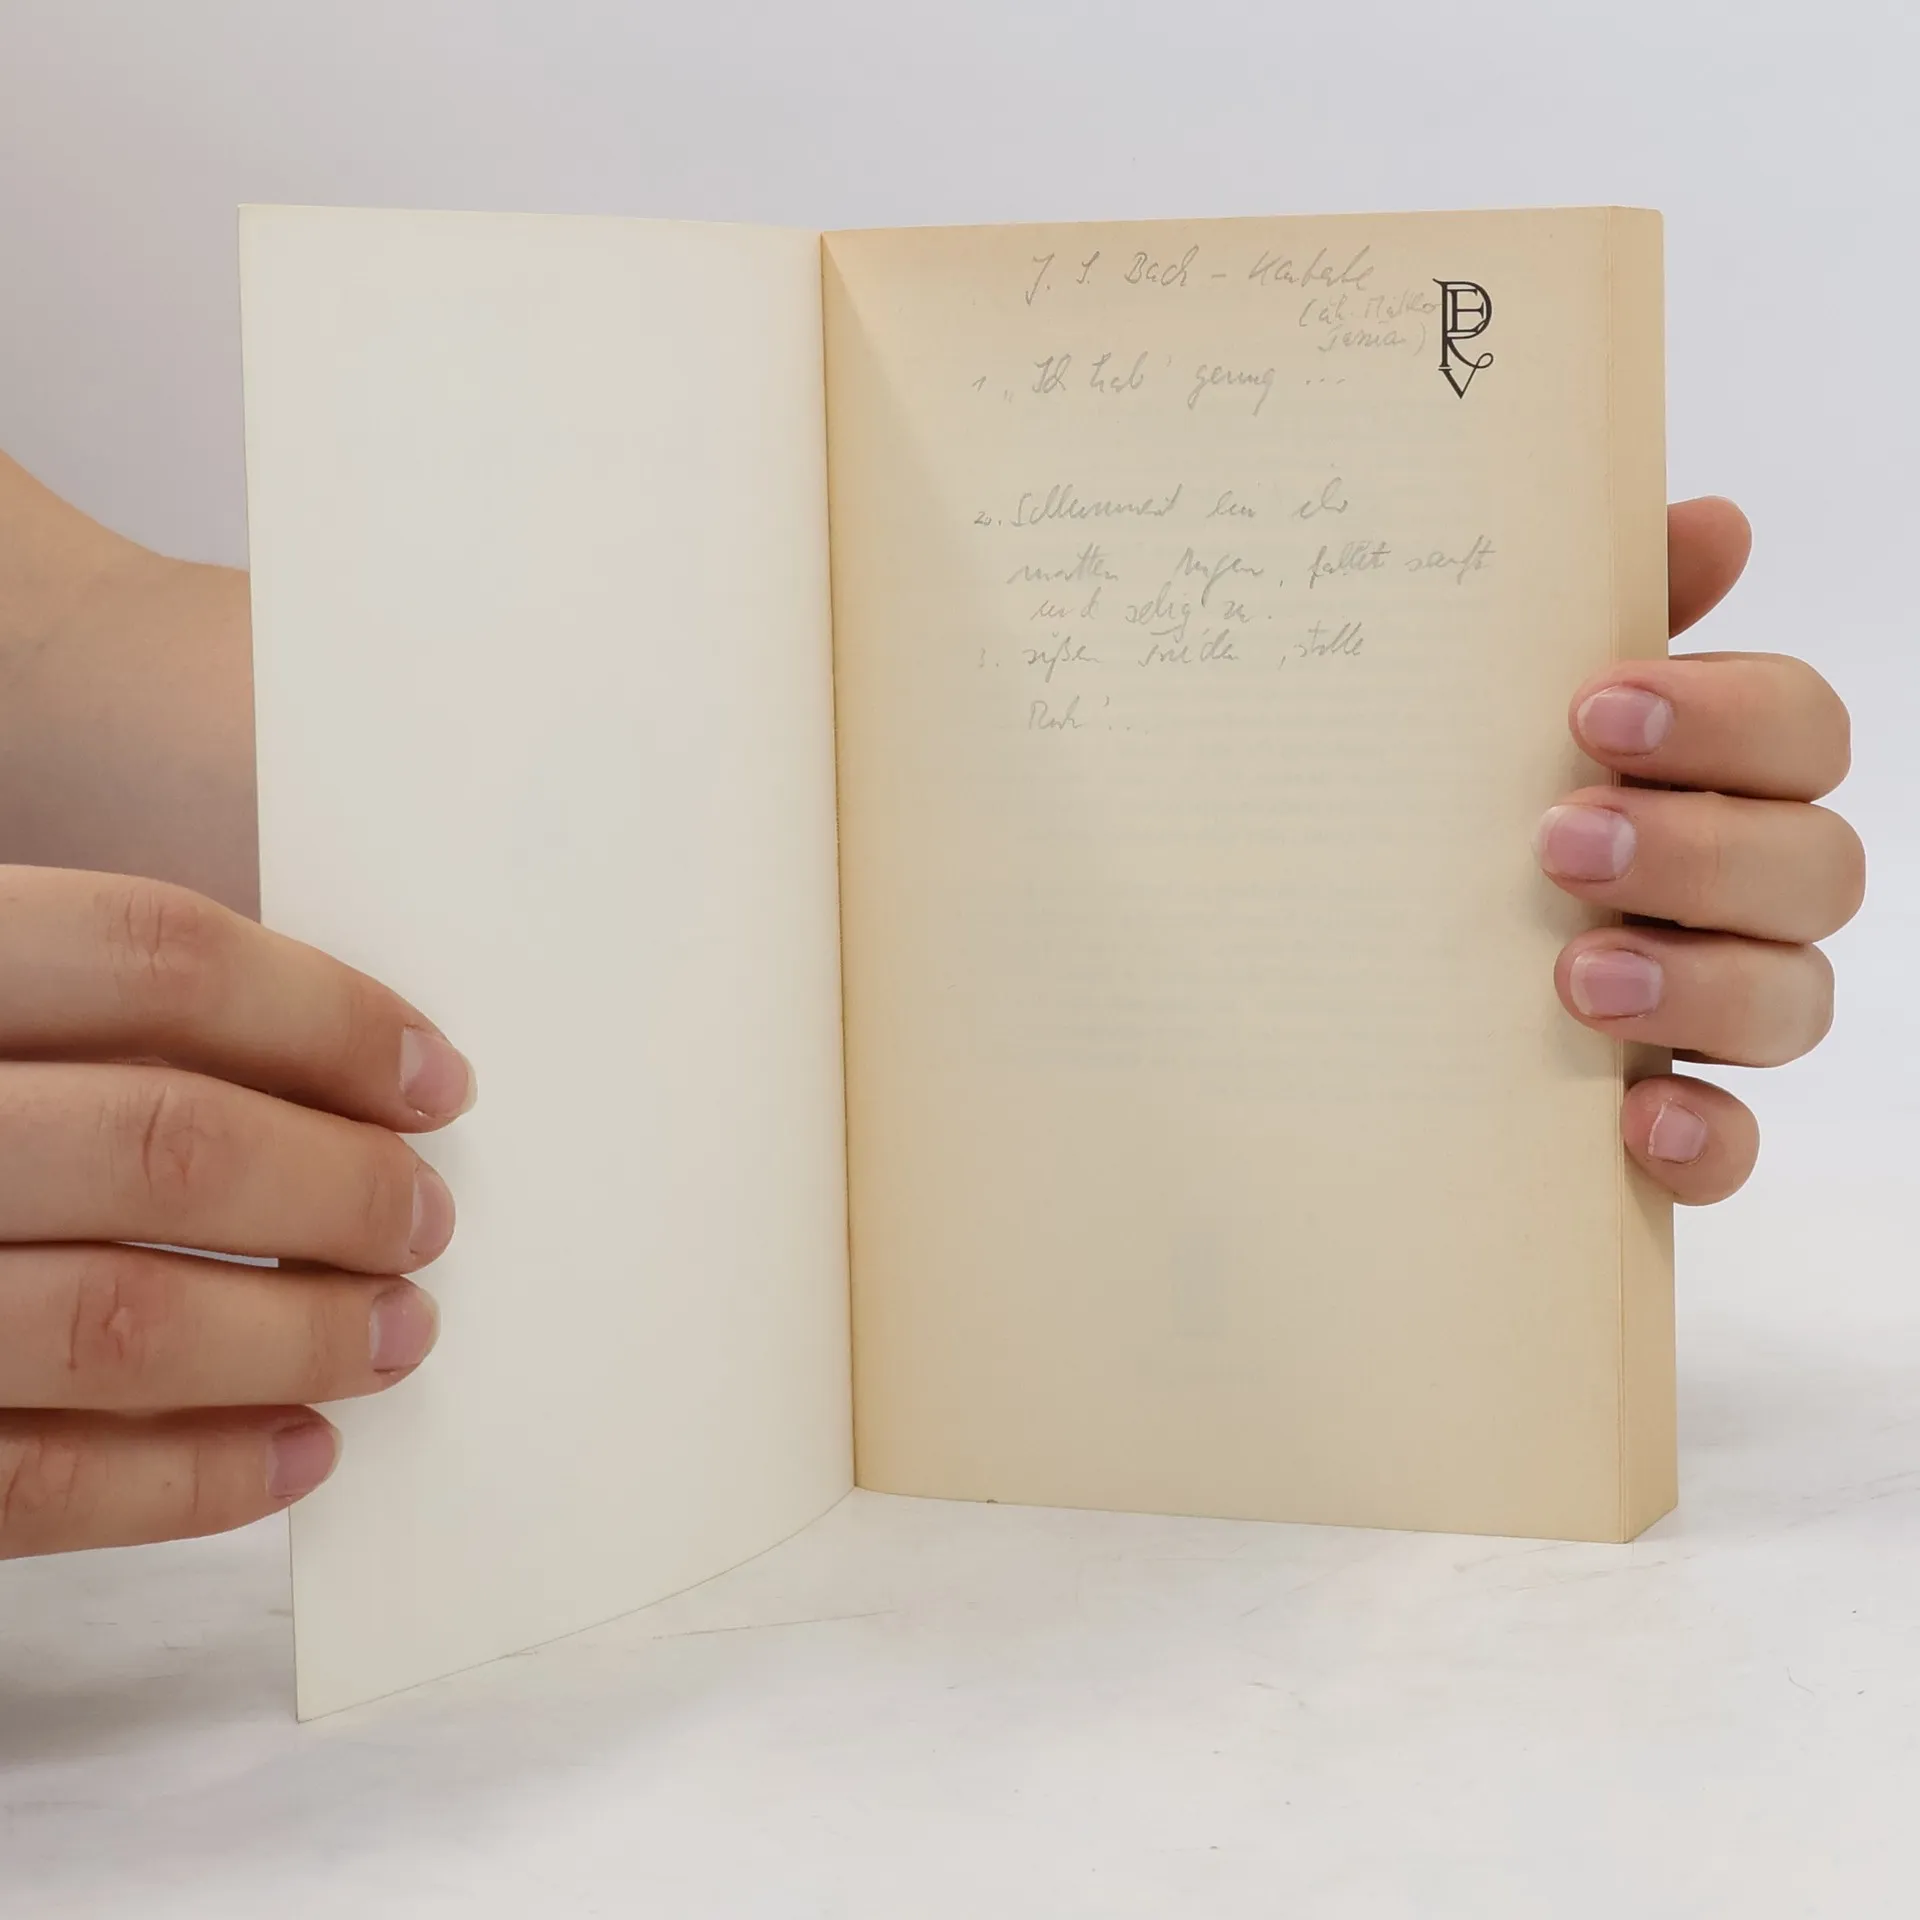 J. S. Bach – Kantate
PERV
1. „Ich hab' genug ...
2. Schlummert ein ihr
matten Augen, fallet sanft
und selig zu.
3. süßen Frieden, stille
Ruh'...